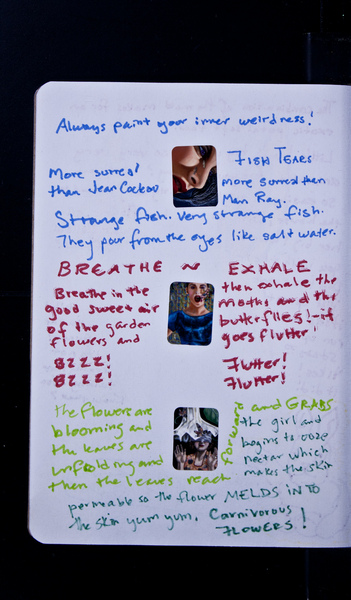 Always paint your inner weirdness!
FISH TEARS
More surreal
than Jean Cocteau
more surreal than
Man Ray.
Strange fish. Very strange fish.
They pour from the eyes like salt water.
BREATHE ~ EXHALE
Breathe in the
good sweet air
of the garden
flowers and
BZZZ!
BZZZ!
then exhale the
moths and the
butterflies! - it
goes flutter!
Flutter!
Flutter!
the flowers are
blooming and
the leaves are
unfolding and
then the leaves reach
forward and GRABS
the girl and
begins to ooze
nectar which
makes the skin
permeable so the flower MELDS INTO
the skin yum yum. Carnivorous
FLOWERS!